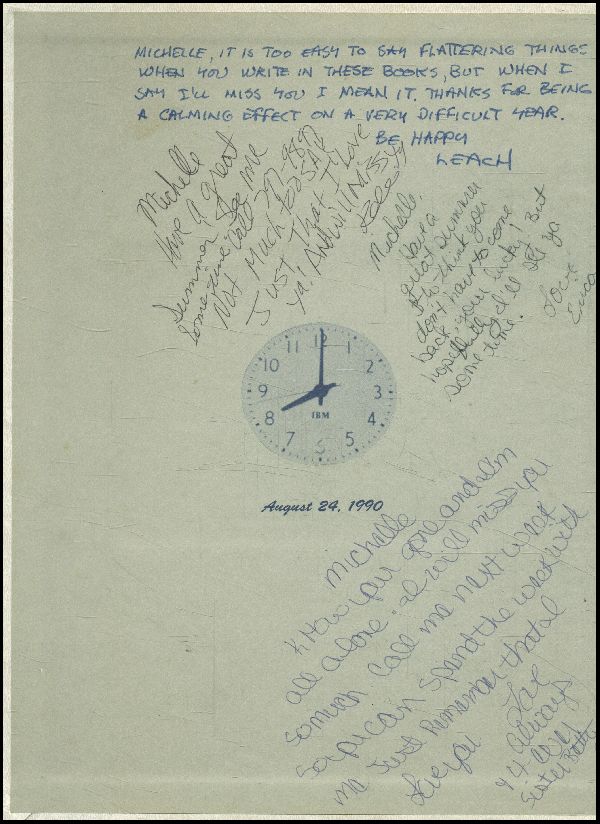 MICHELLE, IT IS TOO EASY TO SAY FLATTERING THINGS
WHEN YOU WRITE IN THESE BOOKS, BUT WHEN I
SAY I'LL MISS YOU I MEAN IT. THANKS FOR BEING
A CALMING EFFECT ON A VERY DIFFICULT YEAR.
BE HAPPY
LEACH
Michelle
Have a great
Summer, See me
Sometime Call
Not Much to SAY
Just That I Love
ya! And will Miss ya
Michelle,
Have a
great summer
I think you
don't have to come
back, your lucky! But
hopefully I'll see ya
some time.
Love
Erica
12
1
2
3
4
5
6
7
8
9
10
11
IBM
August 24, 1990
Michelle
Know your gone and I'm
all alone. I will miss you
So much Call me next what
So you can Spend the week with
me Just Remember that I
love you
Love
Always
Sister